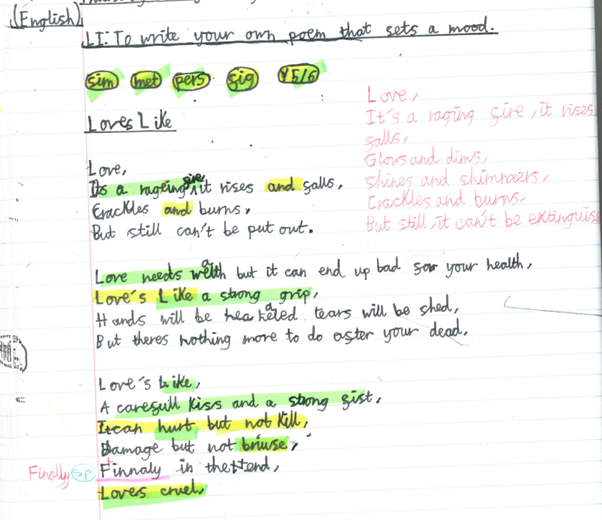 (English)
LI: To write your own poem that sets a mood.
sim met pers fig Y5/6
Loves Like
Love,
Its a rageing fire, it rises and falls,
Crackles and burns,
But still can't be put out.
Love needs wealth but it can end up bad for your health,
Love's Like a strong grip,
Hands will be heated tears will be shed,
But theres nothing more to do after your dead,
Love's Like,
A carefull kiss and a strong fist,
It can hurt but not kill,
Damage but not briuse,
Finnaly in the end,
Loves cruel,
Finally sp
Love,
It's a raging fire, it rises
falls,
Glows and dims,
shines and shimmers,
Crackles and burns,
But still, it can't be extinguis